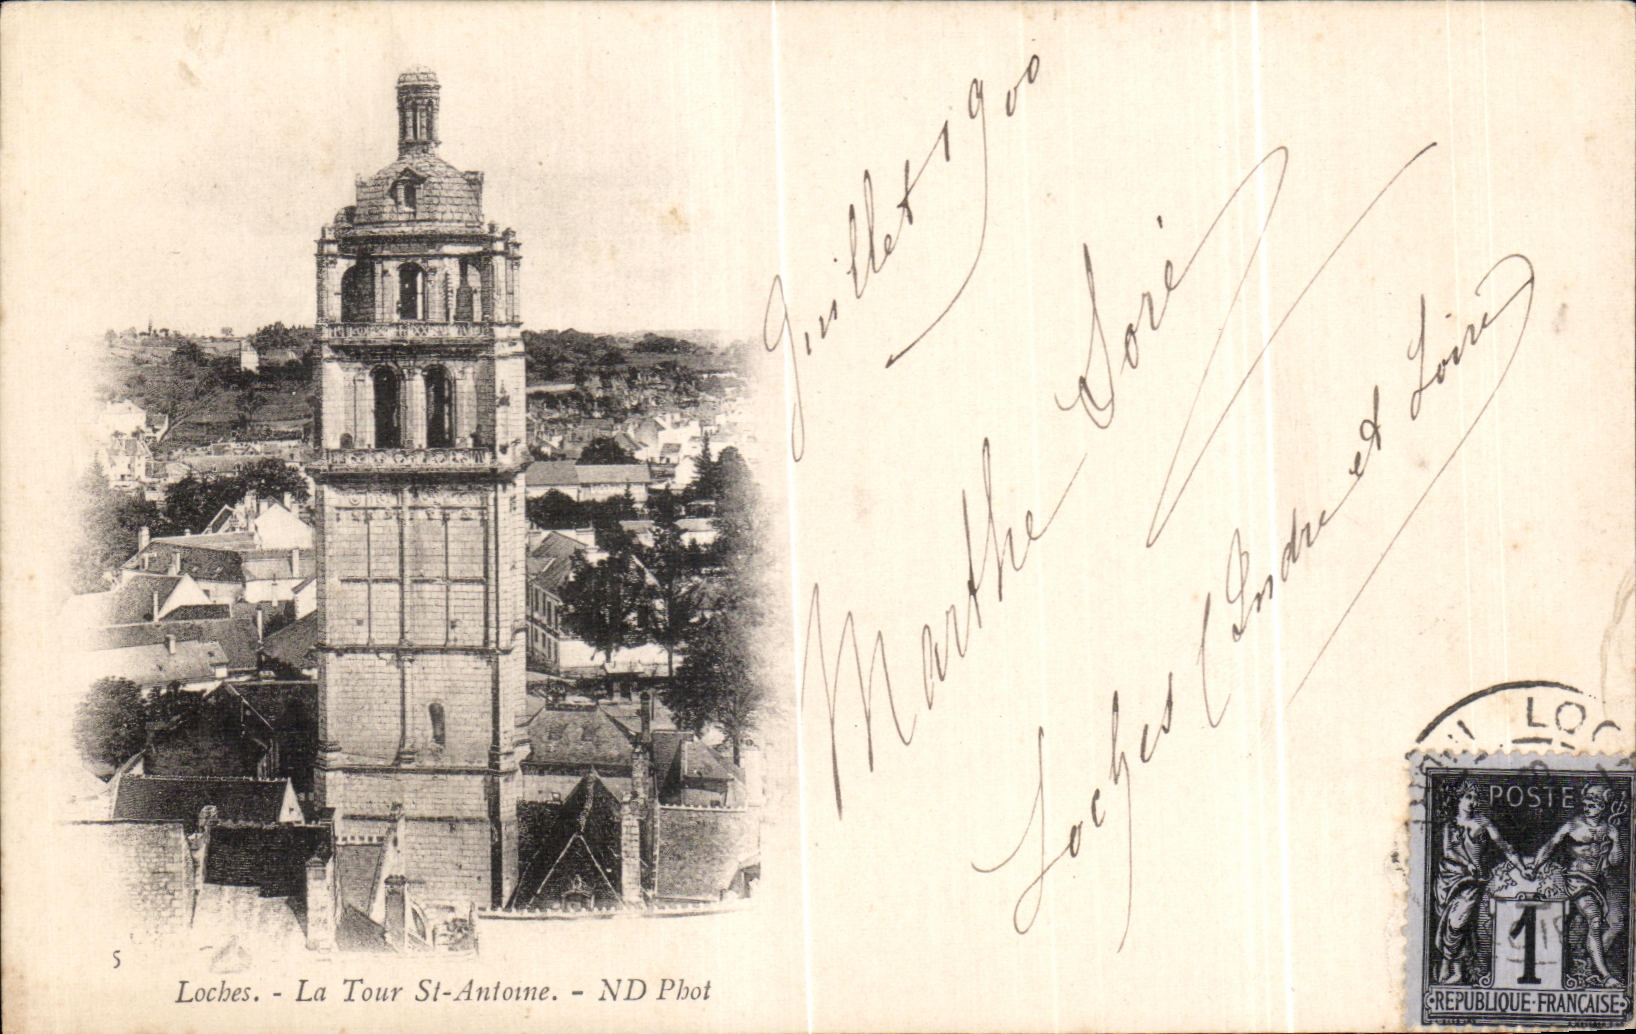 Juillet 1900
Marthe Soré
Loches (Indre et Loire)
LOC
POSTE
1
REPUBLIQUE·FRANÇAISE
5
Loches. - La Tour St-Antoine. - ND Phot